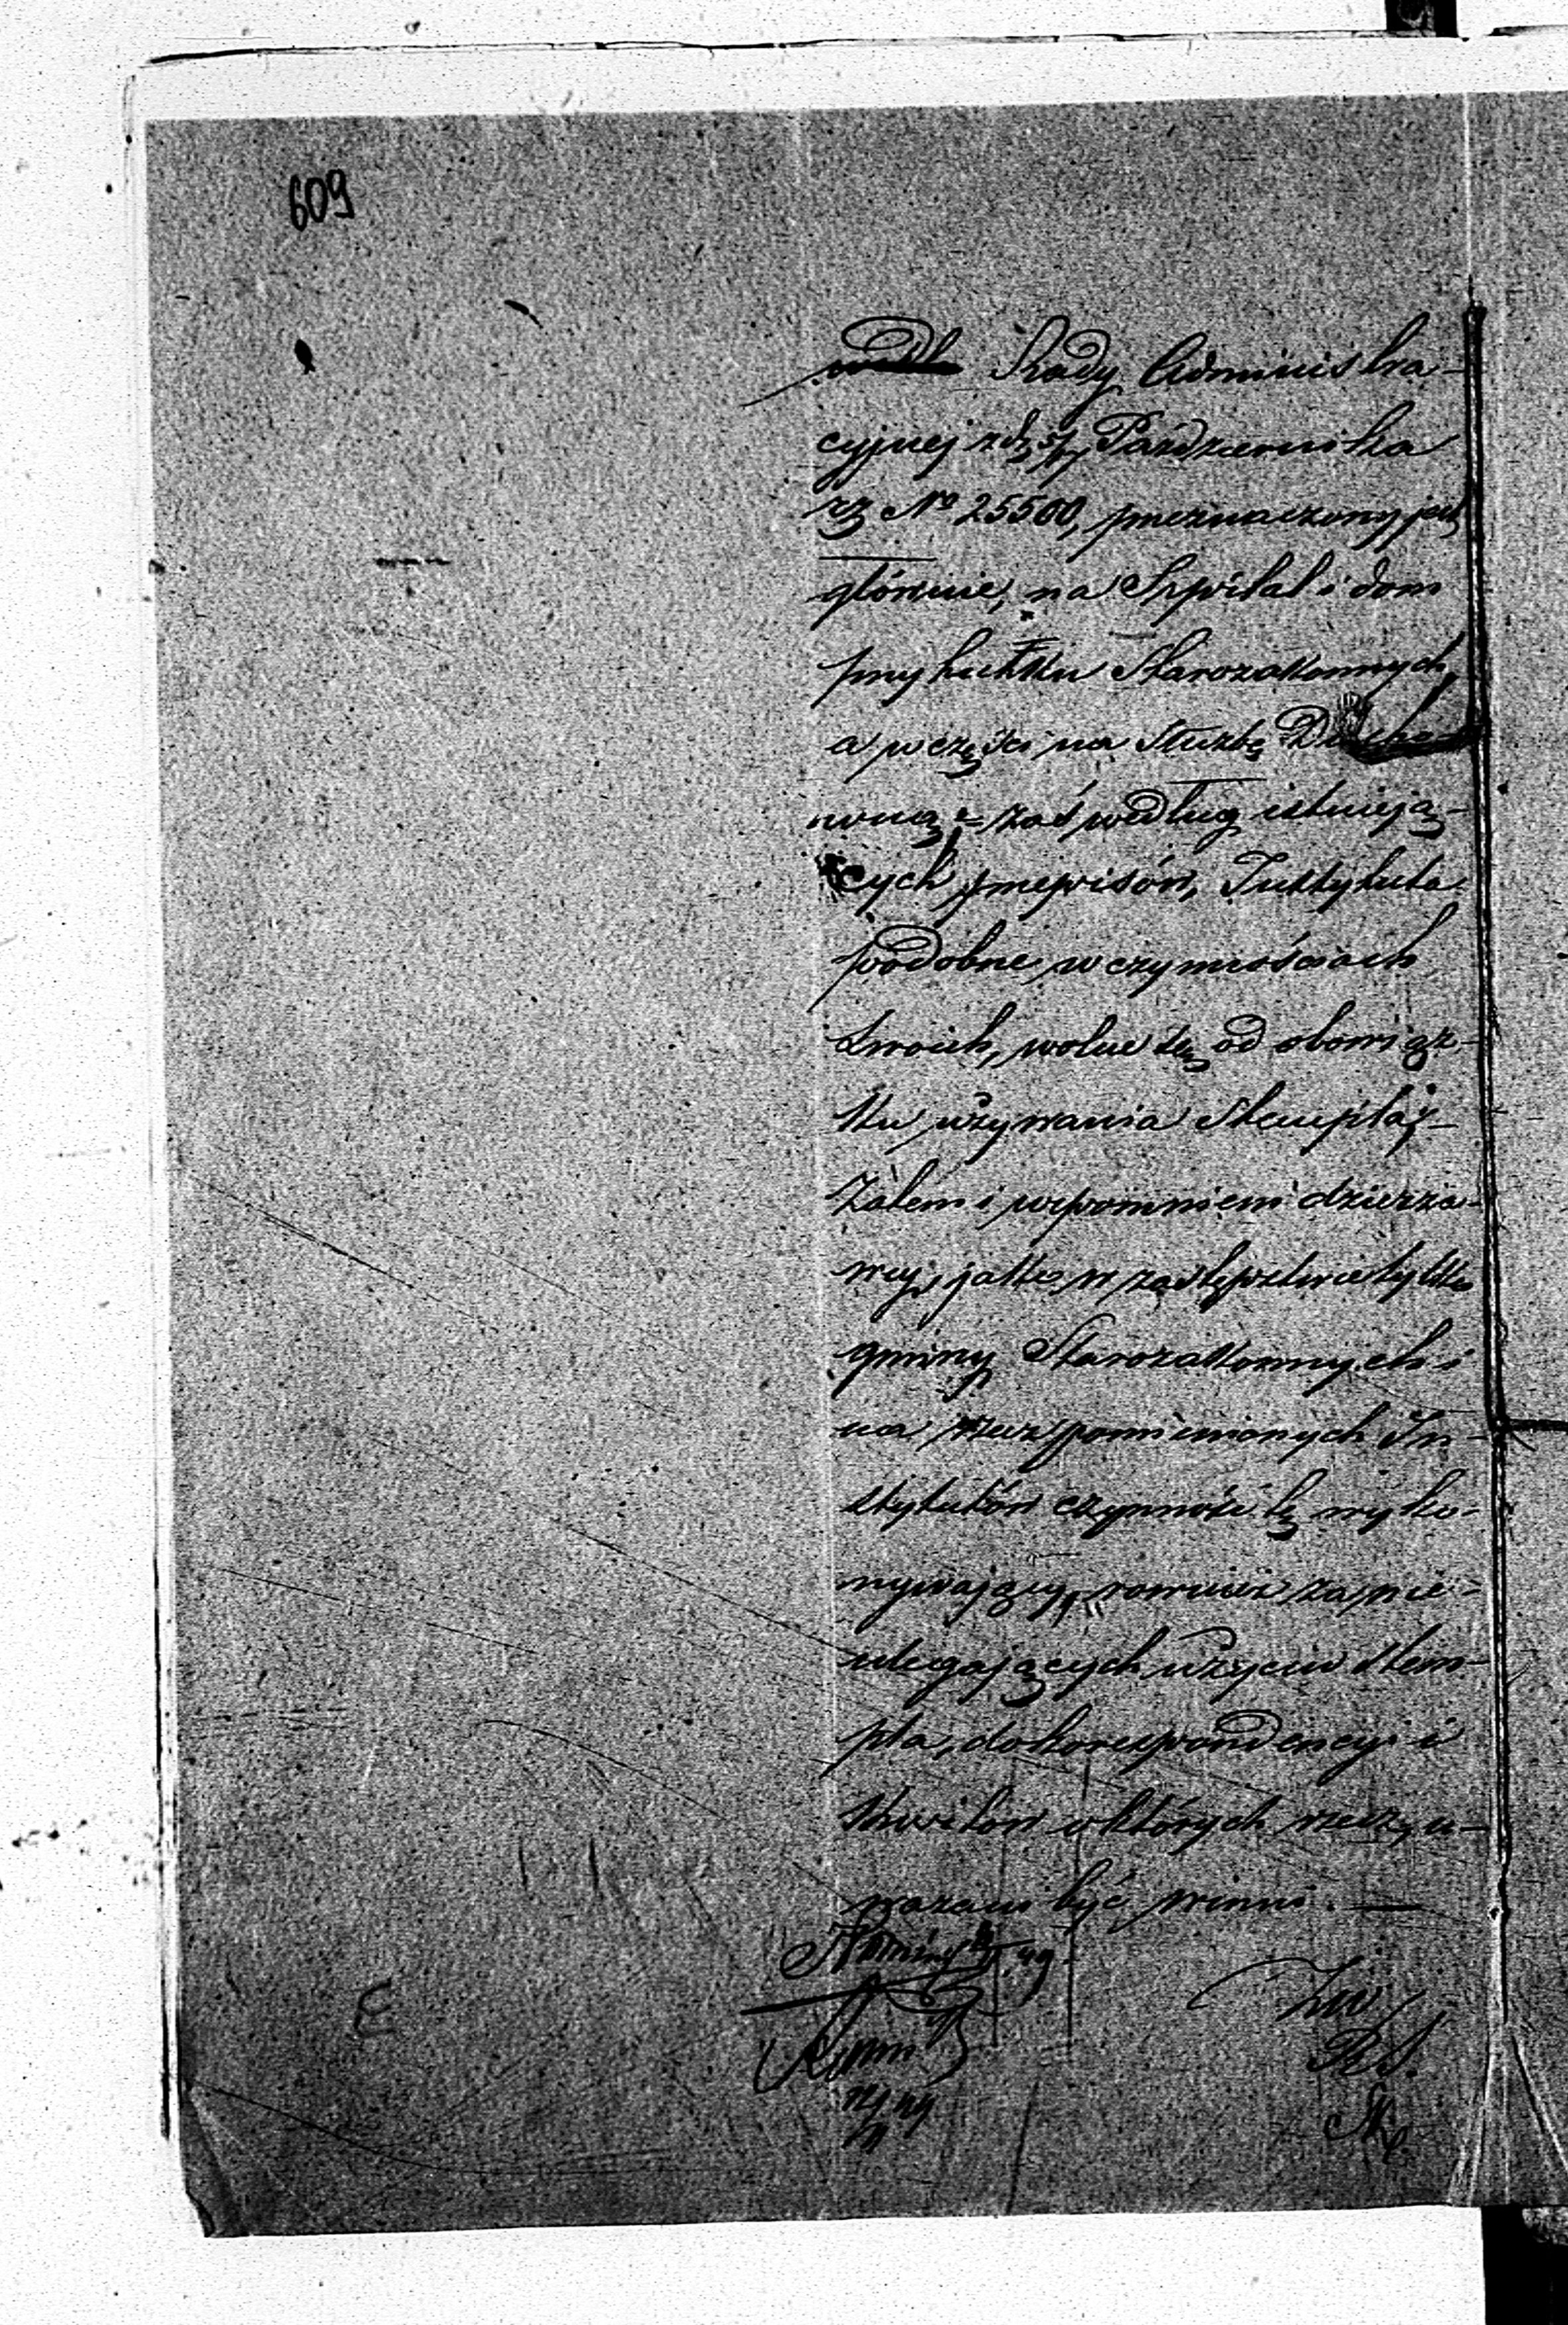 609
Rady Administra-
cyjnej z d. 5/17 Października
rz No 25500, przeznaczony jest
głównie, na Szpital i dom
przytułku Starozakonnych,
a w części na służbę
zaś według istnieją-
cych przepisów, Instytuta
podobne w czynnościach
swoich, wolne są od obowiąz-
ku używania stempla,-
Zatem i wspomnieni dzierża-
wcy, jako w zastępstwie tylko
gminy Starozakonnych i
na rzecz pomienionych In-
stytutów czynność tę wyko-
nywający, rownież za nie-
ulegających użyciu stem-
pla, do korespondencyi i
kwitów o których rzecz, u-
ważani być winni.
R S.